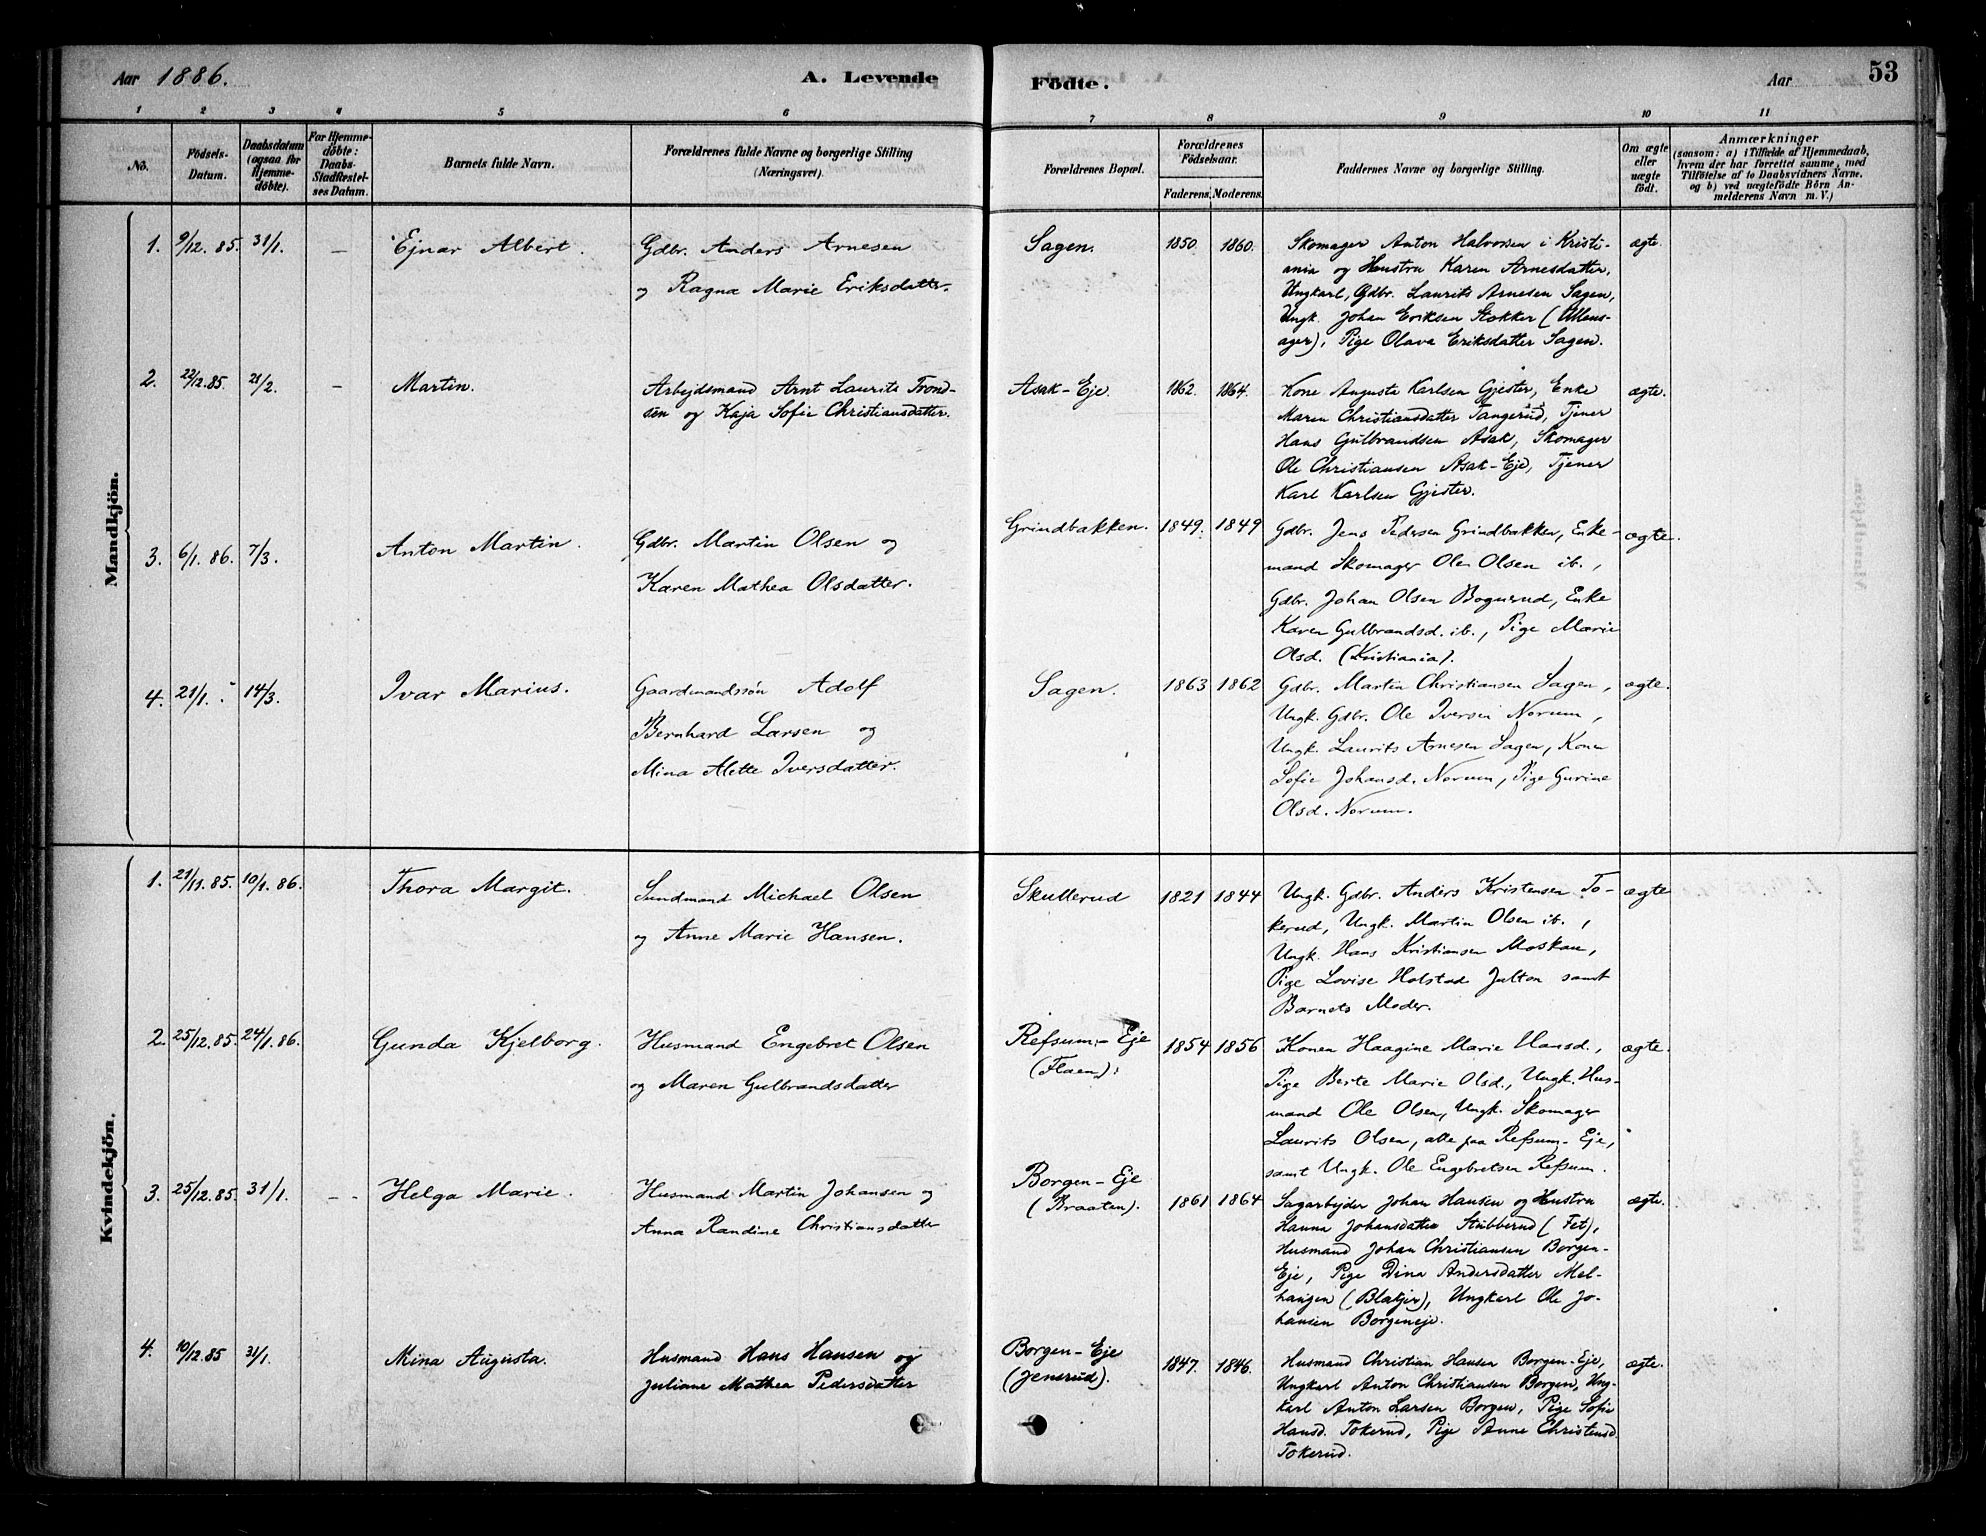 Aar 1886.
A. Levende
Födte.
Aar
53
1 2 3 4 5 6 7 8 9 10 11
No.
Födsels-
Datum.
Daabsdatum
(ogsaa for
Hjemme-
døbte).
For Hjemme-
døbte:
Daabs-
Stadfæstel-
ses Datum.
Barnets fulde Navn.
Forældrenes fulde Navne og borgerlige Stilling
(Næringsvei).
Forældrenes Bopæl.
Forældrenes
Födselsaar.
Faderens. Moderens.
Faddernes Navne og borgerlige Stilling.
Om ægte
eller
uægte
født.
Anmærkninger
(saasom: a) i Tilfælde af Hjemmedaab,
hvem der har forrettet samme, med
Tilføielse af to Daabsvidners Navne.
og b) ved uægtefödte Börn An-
melderens Navn m. V.)
Mandkjön.
1. 9/12. 85. 31/1. – Ejnar Albert.
Gdbr. Anders Arnesen
og Ragna Marie Eriksdatter.
Sagen. 1850. 1860.
Skomager Anton Halvorsen i Kristi-
ania og Hustru Karen Arnesdatter,
Ungkarl, Gdbr. Laurits Arnesen Sagen,
Ungk. Johan Eriksen Stokker (Ullens-
ager), Pige Olava Eriksdatter Sagen.
ægte.
2. 22/12. 85. 21/2. – Martin.
Arbejdsmand Arnt Laurits Trond-
sen og Kaja Sofie Christiansdatter.
Asak-Eje. 1862. 1864.
Kone Augusta Karlsen Gjester, Enke
Maren Christiansdatter Tangerud, Tjener
Hans Gulbrandsen Asak, Skomager
Ole Christiansen Asak-Eje, Tjener
Karl Karlsen Gjester.
ægte.
3. 6/1. 86. 7/3. Anton Martin.
Gdbr. Martin Olsen og
Karen Mathea Olsdatter.
Grindbakken. 1849. 1849
Gdbr. Jens Pedersen Grindbakken, Enke-
mand Skomager Ole Olsen ib.,
Gdbr. Johan Olsen Bogerud, Enke
Karen Gulbrandsd. ib., Pige Marie
Olsd. (Kristiania).
ægte.
4. 21/1. " 14/3. Ivar Marius.
Gaardmandssön Adolf
Bernhard Larsen og
Mina Alette Iversdatter.
Sagen. 1863 1862
Gdbr. Martin Christiansen Sagen,
Ungk. Gdbr. Ole Iversen Norum,
Ungk. Laurits Arnesen Sagen, Kone
Sofie Johansd. Norum, Pige Gurine
Olsd. Norum.
ægte.
Kvindekjön.
1. 21/11. 85. 10/1. 86. Thora Margit.
Sundmand Michael Olsen
og Anne Marie Hansen.
Skullerud 1821 1844
Ungk. Gdbr. Anders Kristensen To-
kerud, Ungk. Martin Olsen ib.,
Ungk. Hans Kristiansen Moskau,
Pige Lovise Holstad Julton samt
Barnets Moder.
ægte
2. 25/12. 85. 24/1. 86. Gunda Kjelborg.
Husmand Engebret Olsen
og Maren Gulbrandsdatter
Refsum-Eje
(Flaen). 1854 1856
Konen Haagine Marie Hansd.,
Pige Berte Marie Olsd., Ungk. Hus-
mand Ole Olsen, Ungk. Skomager
Laurits Olsen, alle paa Refsum-Eje,
samt Ungk. Ole Engebretsen Refsum.
ægte.
3. 25/12. 85. 31/1. – – Helga Marie.
Husmand Martin Johansen og
Anna Randine Christiansdatter
Borgen-Eje
(Braaten). 1861 1864
Sagarbejder Johan Hansen og Hustru
Hanna Johansdatter Stubberud (Fet),
Husmand Johan Christiansen Borgen-
Eje, Pige Dina Andersdatter Mel-
haugen (Blakjer), Ungkarl Ole Jo-
hansen Borgeneje.
ægte.
4. 10/12. 85 31/1. Mina Augusta.
Husmand Hans Hansen og
Juliane Mathea Pedersdatter
Borgen-Eje
(Jensrud). 1847. 1846.
Husmand Christian Hansen Borgen-Eje,
Ungkarl Anton Christiansen Borgen, Ung-
karl Anton Larsen Borgen, Pige Sofie
Hansd. Tokerud, Pige Anne Christensd.
Tokerud.
ægte.